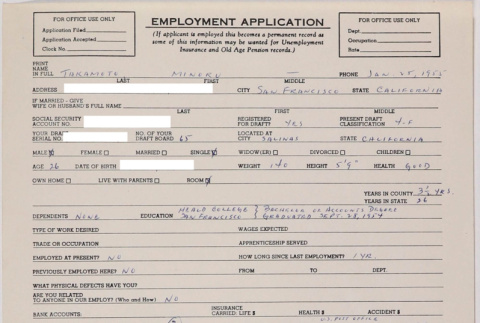 FOR OFFICE USE ONLY
Application Filed
Application Accepted
Clock No.
EMPLOYMENT APPLICATION
(If applicant is employed this becomes a permanent record as
some of this information may be wanted for Unemployment
Insurance and Old Age Pension records.)
FOR OFFICE USE ONLY
Dept.
Occupation
Rate
PRINT
NAME
IN FULL TAKAMOTO MINORU — PHONE JAN. 25, 1955
LAST FIRST MIDDLE
ADDRESS CITY SAN FRANCISCO STATE CALIFORNIA
IF MARRIED - GIVE
WIFE OR HUSBAND'S FULL NAME
LAST FIRST MIDDLE
SOCIAL SECURITY ACCOUNT NO. REGISTERED FOR DRAFT? YES PRESENT DRAFT CLASSIFICATION 4-F
YOUR DRAFT SERIAL NO. NO. OF YOUR DRAFT BOARD 65 LOCATED AT CITY SALINAS STATE CALIFORNIA
MALE FEMALE MARRIED SINGLE WIDOW(ER) DIVORCED CHILDREN
AGE 26 DATE OF BIRTH WEIGHT 140 HEIGHT 5' 9" HEALTH GOOD
OWN HOME LIVE WITH PARENTS ROOM
YEARS IN COUNTY 3½ YRS.
YEARS IN STATE 26
DEPENDENTS NONE EDUCATION HEALD COLLEGE SAN FRANCISCO } BACHELOR OF ACCOUNTS DEGREE GRADUATED SEPT. 28, 1954
TYPE OF WORK DESIRED WAGES EXPECTED
TRADE OR OCCUPATION APPRENTICESHIP SERVED
EMPLOYED AT PRESENT? NO HOW LONG SINCE LAST EMPLOYMENT? 1 YR.
PREVIOUSLY EMPLOYED HERE? NO FROM TO DEPT.
WHAT PHYSICAL DEFECTS HAVE YOU?
ARE YOU RELATED
TO ANYONE IN OUR EMPLOY? (Who and How) NO
BANK ACCOUNTS: INSURANCE CARRIED: LIFE $ HEALTH $ ACCIDENT $
U.S. POST OFFICE